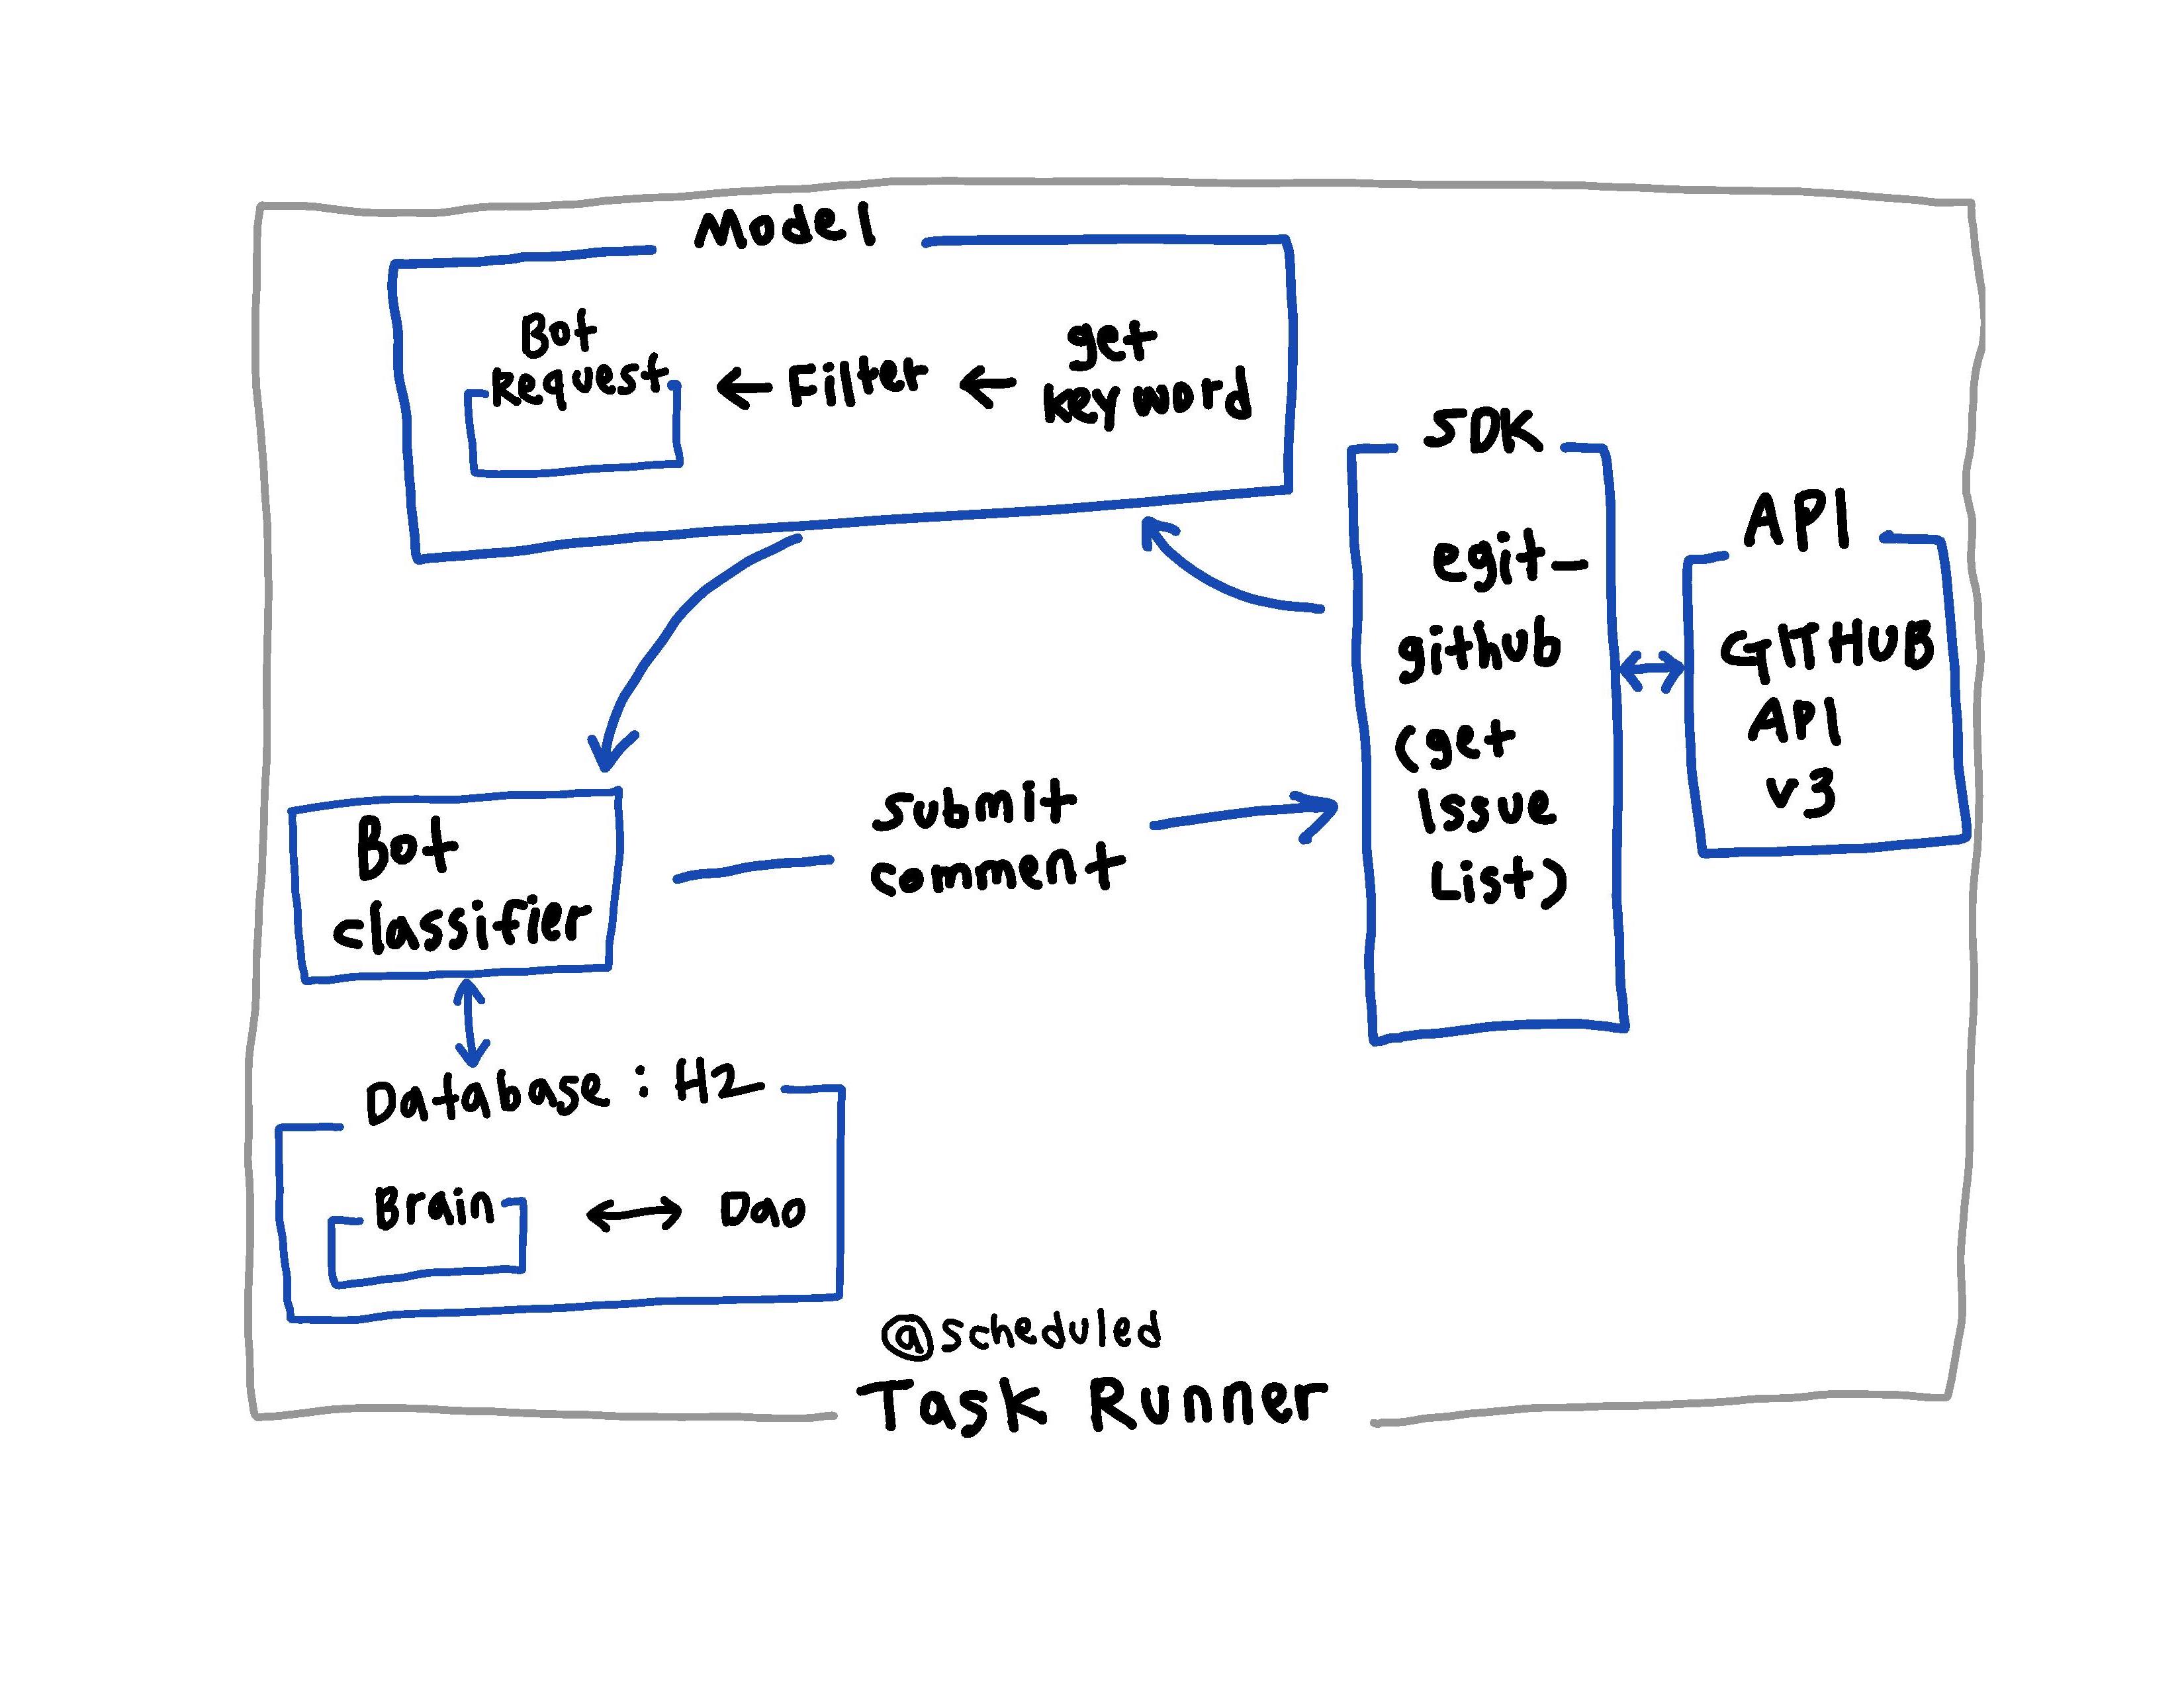 Model
Bot
Request
Filter
get
keyword
SDK
egit-
github
(get
Issue
List)
API
GITHUB
API
v3
Bot
classifier
submit
comment
Database : H2
Brain
Dao
@scheduled
Task Runner